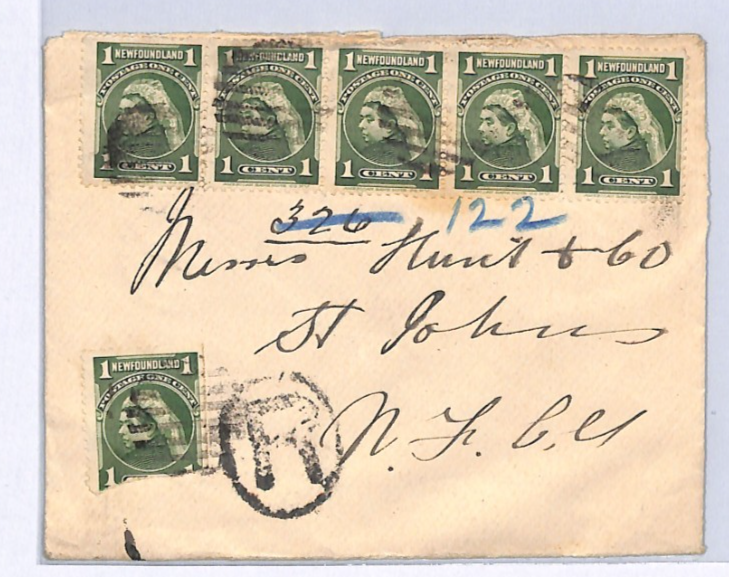 1 NEWFOUNDLAND 1 1 NEWFOUNDLAND 1 1 NEWFOUNDLAND 1 1 NEWFOUNDLAND 1 1 NEWFOUNDLAND 1
POSTAGE ONE CENT POSTAGE ONE CENT POSTAGE ONE CENT POSTAGE ONE CENT POSTAGE ONE CENT
1 CENT 1 1 CENT 1 1 CENT 1 1 CENT 1 1 CENT 1
326 122
Messrs Hunt & Co
St Johns
N.F.
1 NEWFOUNDLAND 1
POSTAGE ONE CENT
1 CENT 1
R